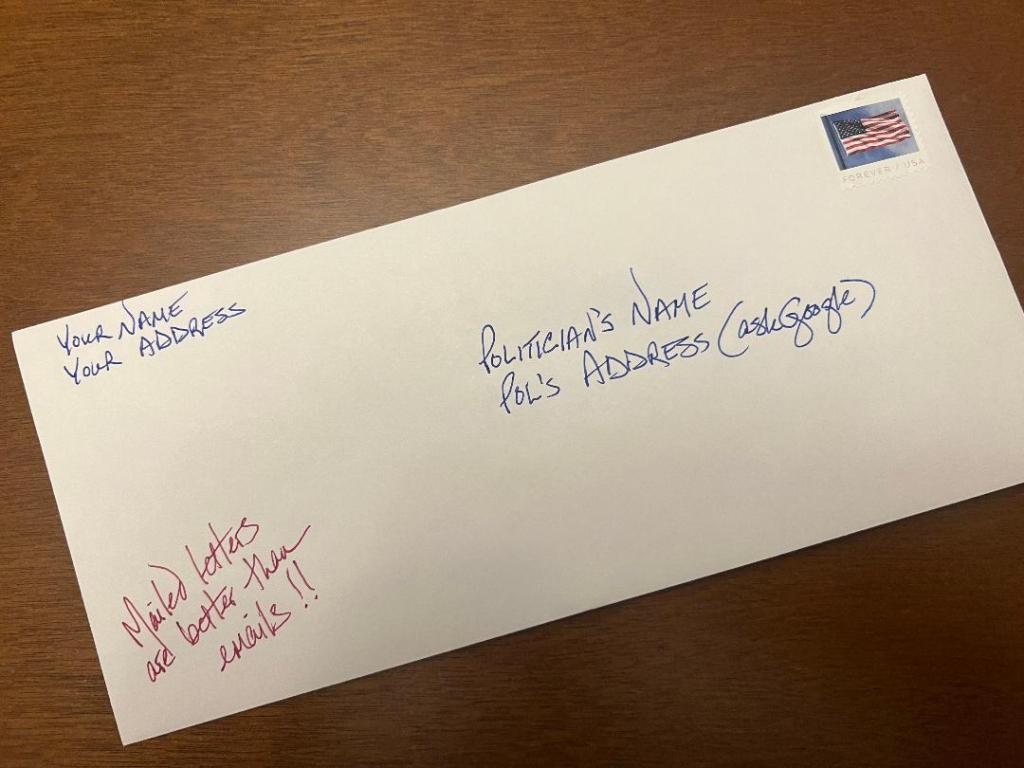 YOUR NAME
YOUR ADDRESS
FOREVER / USA
POLITICIAN'S NAME
POL'S ADDRESS (ask Google)
Mailed letters
are better than
emails!!